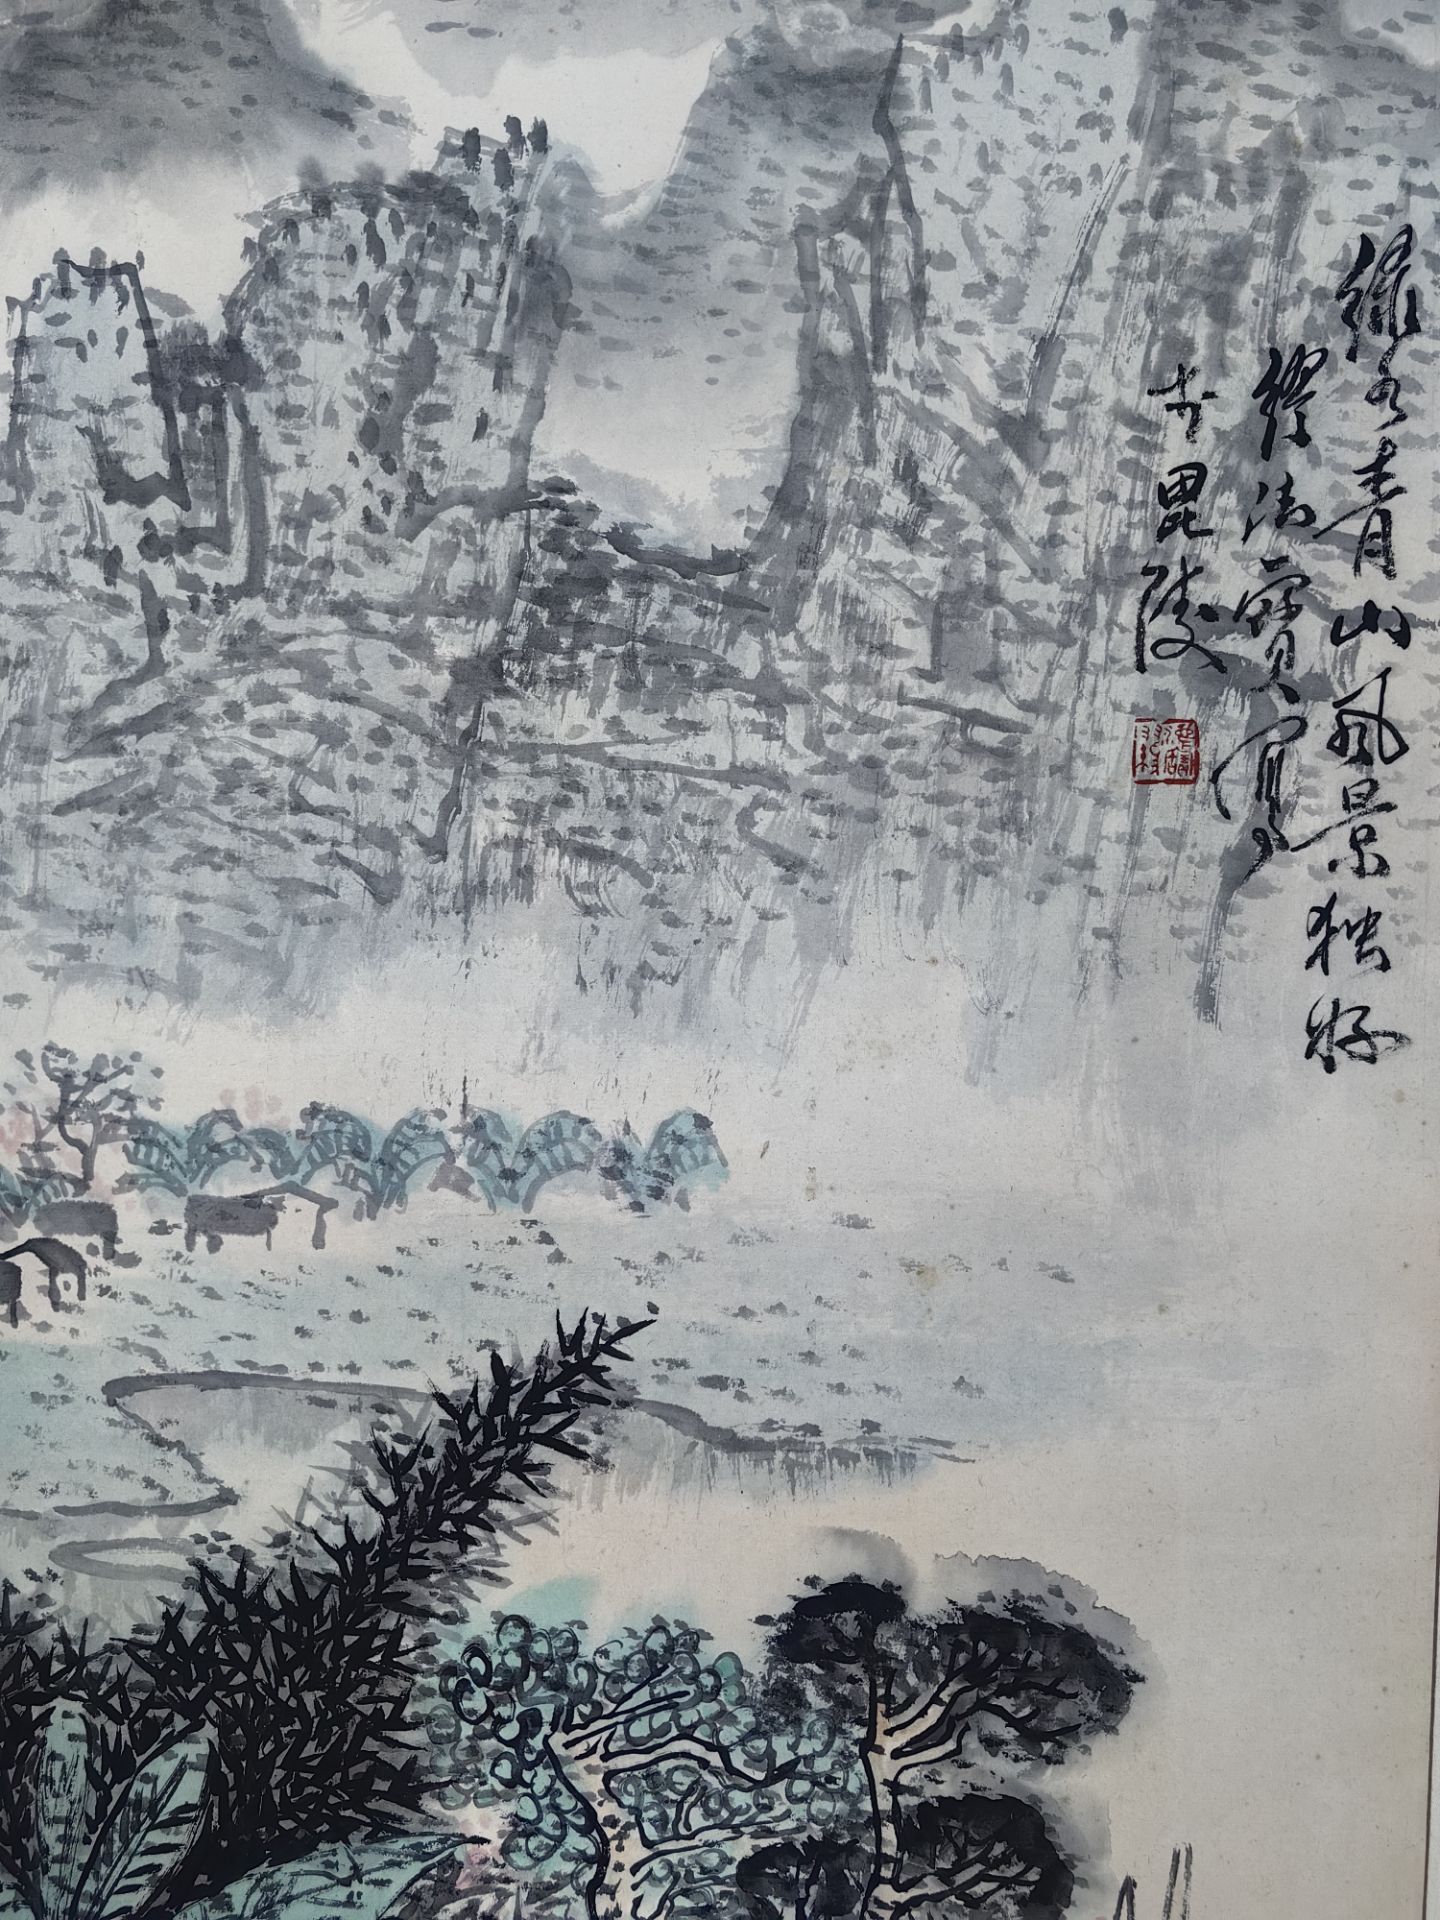 绿水青山风景独好
缪法宝写
于毘陵